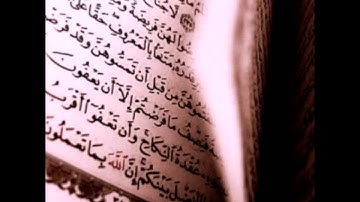 لَهُنَّ فَرِيضَةً
مَتَٰعًۢا بِٱلْمَعْرُوفِ حَقًّا عَلَى
مِن قَبْلِ أَن تَمَسُّوهُنَّ وَقَدْ فَرَضْ
فَنِصْفُ مَا فَرَضْتُمْ إِلَّآ أَن يَعْفُونَ
عُقْدَةُ ٱلنِّكَاحِ ۚ وَأَن تَعْفُوٓا۟ أَقْرَبُ
ٱلْفَضْلَ بَيْنَكُمْ ۚ إِنَّ ٱللَّهَ بِمَا تَعْمَلُونَ